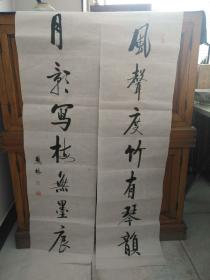 鳳聲度竹有琴韻
月影寫梅無墨痕